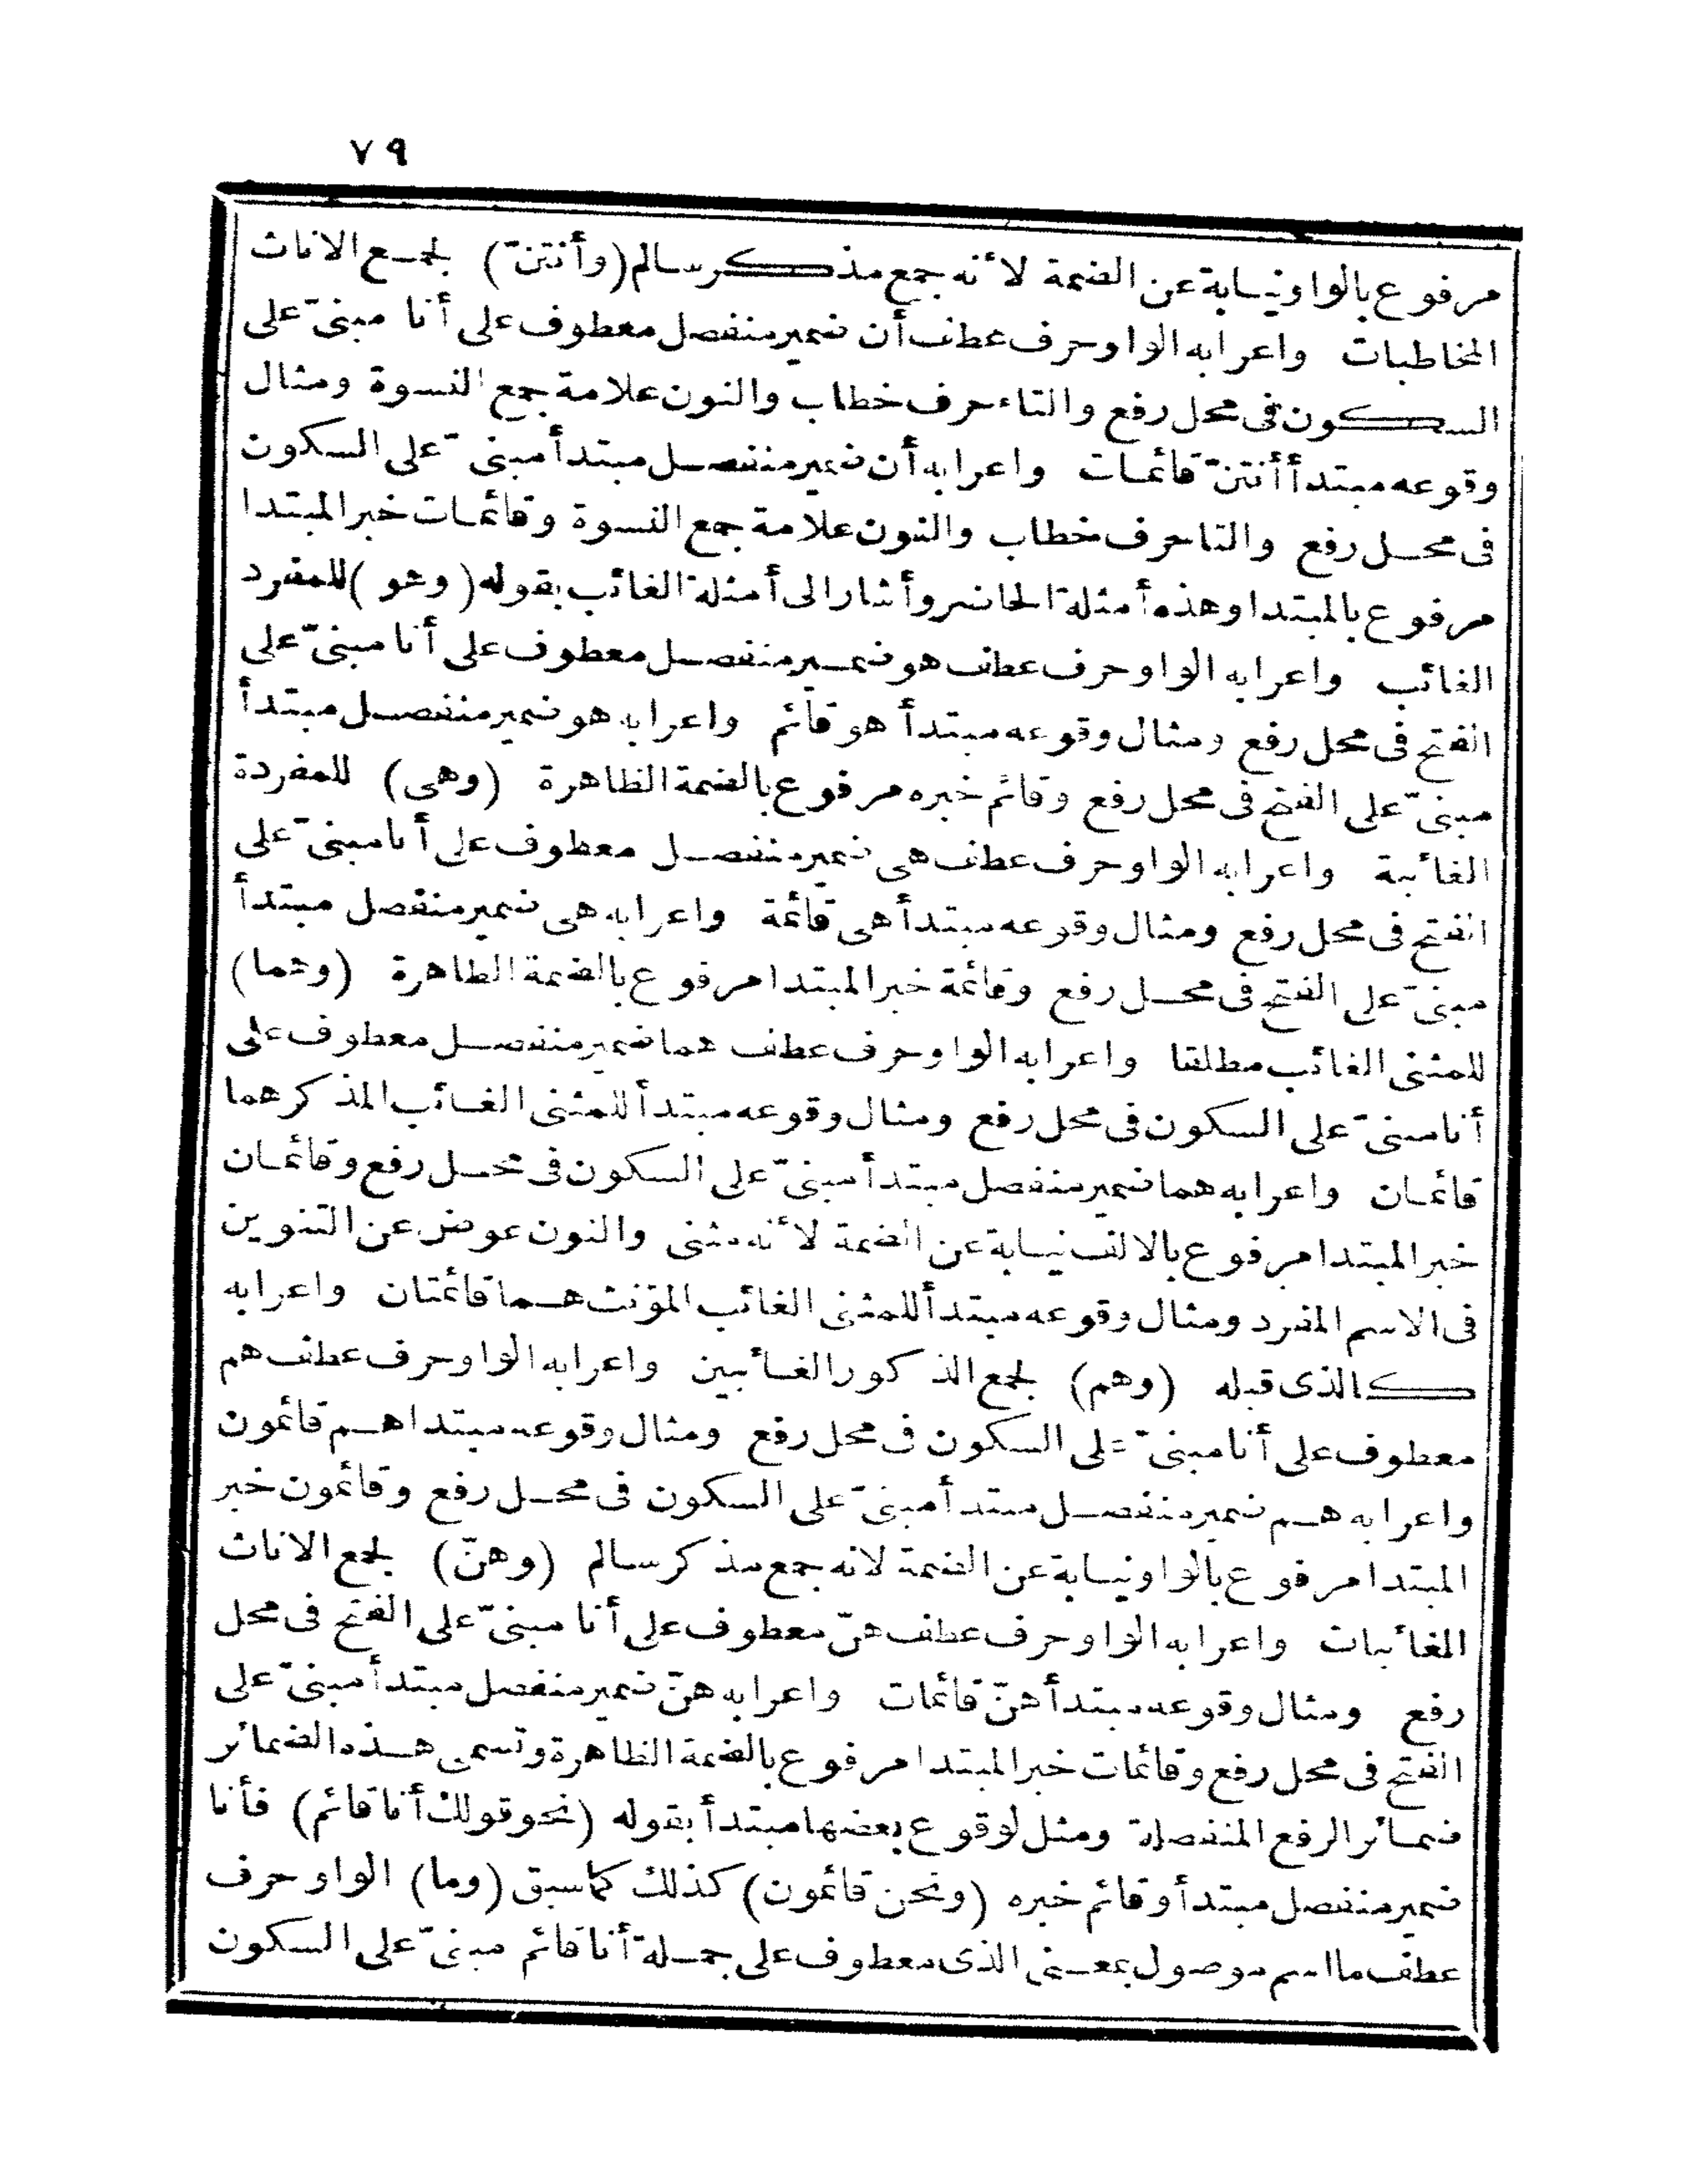 ٧٩
مرفوع بالواو نيابة عن الضمة لأنه جمع مذكر سالم (وأنتنّ) لجمع الاناث
المخاطبات واعرابه الواو حرف عطف أن ضمير منفصل معطوف على أنا مبنىّ على
السكون فى محل رفع والتاء حرف خطاب والنون علامة جمع النسوة ومثال
وقوعه مبتدأ أنتنّ قائمات واعرابه أن ضمير منفصل مبتدأ مبنىّ على السكون
فى محل رفع والتا حرف خطاب والنون علامة جمع النسوة وقائمات خبر المبتدا
مرفوع بالمبتدا وهذه أمثلة الحاضر وأشار الى أمثلة الغائب بقوله (وهو) للمفرد
الغائب واعرابه الواو حرف عطف هو ضمير منفصل معطوف على أنا مبنىّ على
الفتح فى محل رفع ومثال وقوعه مبتدأ هو قائم واعرابه هو ضمير منفصل مبتدأ
مبنىّ على الفتح فى محل رفع وقائم خبره مرفوع بالضمة الظاهرة (وهى) للمفردة
الغائبة واعرابه الواو حرف عطف هى ضمير منفصل معطوف على أنا مبنىّ على
الفتح فى محل رفع ومثال وقوعه مبتدأ هى قائمة واعرابه هى ضمير منفصل مبتدأ
مبنىّ على الفتح فى محل رفع وقائمة خبر المبتدا مرفوع بالضمة الظاهرة (وهما)
للمثنى الغائب مطلقا واعرابه الواو حرف عطف هما ضمير منفصل معطوف على
أنا مبنىّ على السكون فى محل رفع ومثال وقوعه مبتدأ للمثنى الغائب المذكر هما
قائمان واعرابه هما ضمير منفصل مبتدأ مبنىّ على السكون فى محل رفع وقائمان
خبر المبتدا مرفوع بالالف نيابة عن الضمة لأنه مثنى والنون عوض عن التنوين
فى الاسم المفرد ومثال وقوعه مبتدأ للمثنى الغائب المؤنث هما قائمتان واعرابه
كالذى قبله (وهم) لجمع الذكور الغائبين واعرابه الواو حرف عطف هم
معطوف على أنا مبنىّ على السكون فى محل رفع ومثال وقوعه مبتدا هم قائمون
واعرابه هم ضمير منفصل مبتدأ مبنىّ على السكون فى محل رفع وقائمون خبر
المبتدا مرفوع بالواو نيابة عن الضمة لانه جمع مذكر سالم (وهنّ) لجمع الاناث
الغائبات واعرابه الواو حرف عطف هنّ معطوف على أنا مبنىّ على الفتح فى محل
رفع ومثال وقوعه مبتدأ هنّ قائمات واعرابه هنّ ضمير منفصل مبتدأ مبنىّ على
الفتح فى محل رفع وقائمات خبر المبتدا مرفوع بالضمة الظاهرة وتسمى هذه الضمائر
ضمائر الرفع المنفصلة ومثل لوقوع بعضها مبتدأ بقوله (نحو قولك أنا قائم) فأنا
ضمير منفصل مبتدأ وقائم خبره (ونحن قائمون) كذلك كما سبق (وما) الواو حرف
عطف ما اسم موصول بمعنى الذى معطوف على جملة أنا قائم مبنىّ على السكون